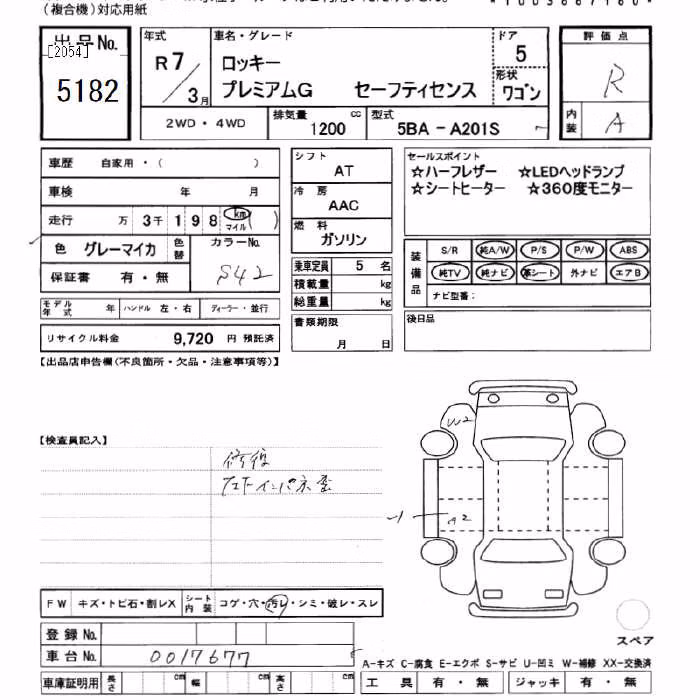 (複合機)対応用紙
出品No.
[2054]
5182
年式
R7/3月
車名・グレード
ロッキー
プレミアムG セーフティセンス
ドア
5
形状
ワゴン
2WD・4WD
排気量
1200 cc
型式
5BA - A201S
評価点
R
内装
A
車歴 自家用・( )
車検 年 月
走行 万 3千 198 km マイル ( )
色 グレーマイカ
色替
カラーNo.
S42
保証書 有・無
モデル年式 年
ハンドル 左・右
ディーラー・並行
リサイクル料金 9,720 円 預託済
シフト
AT
冷房
AAC
燃料
ガソリン
乗車定員 5 名
積載量 kg
総重量 kg
書類期限
月 日
セールスポイント
☆ハーフレザー ☆LEDヘッドランプ
☆シートヒーター ☆360度モニター
装備品
S/R 純A/W P/S P/W ABS
純TV 純ナビ 革シート 外ナビ エアB
ナビ型番:
後日品
【出品店申告欄(不良箇所・欠品・注意事項等)】
【検査員記入】
修復
W2
A2
FW キズ・トビ石・割レX
シート内装 コゲ・穴・汚レ・シミ・破レ・スレ
登録No.
車台No. 0017677
スペア
A-キズ C-腐食 E-エクボ S-サビ U-凹ミ W-補修 XX-交換済
車庫証明用 長さ cm 幅 cm 高さ cm
工具 有・無
ジャッキ 有・無